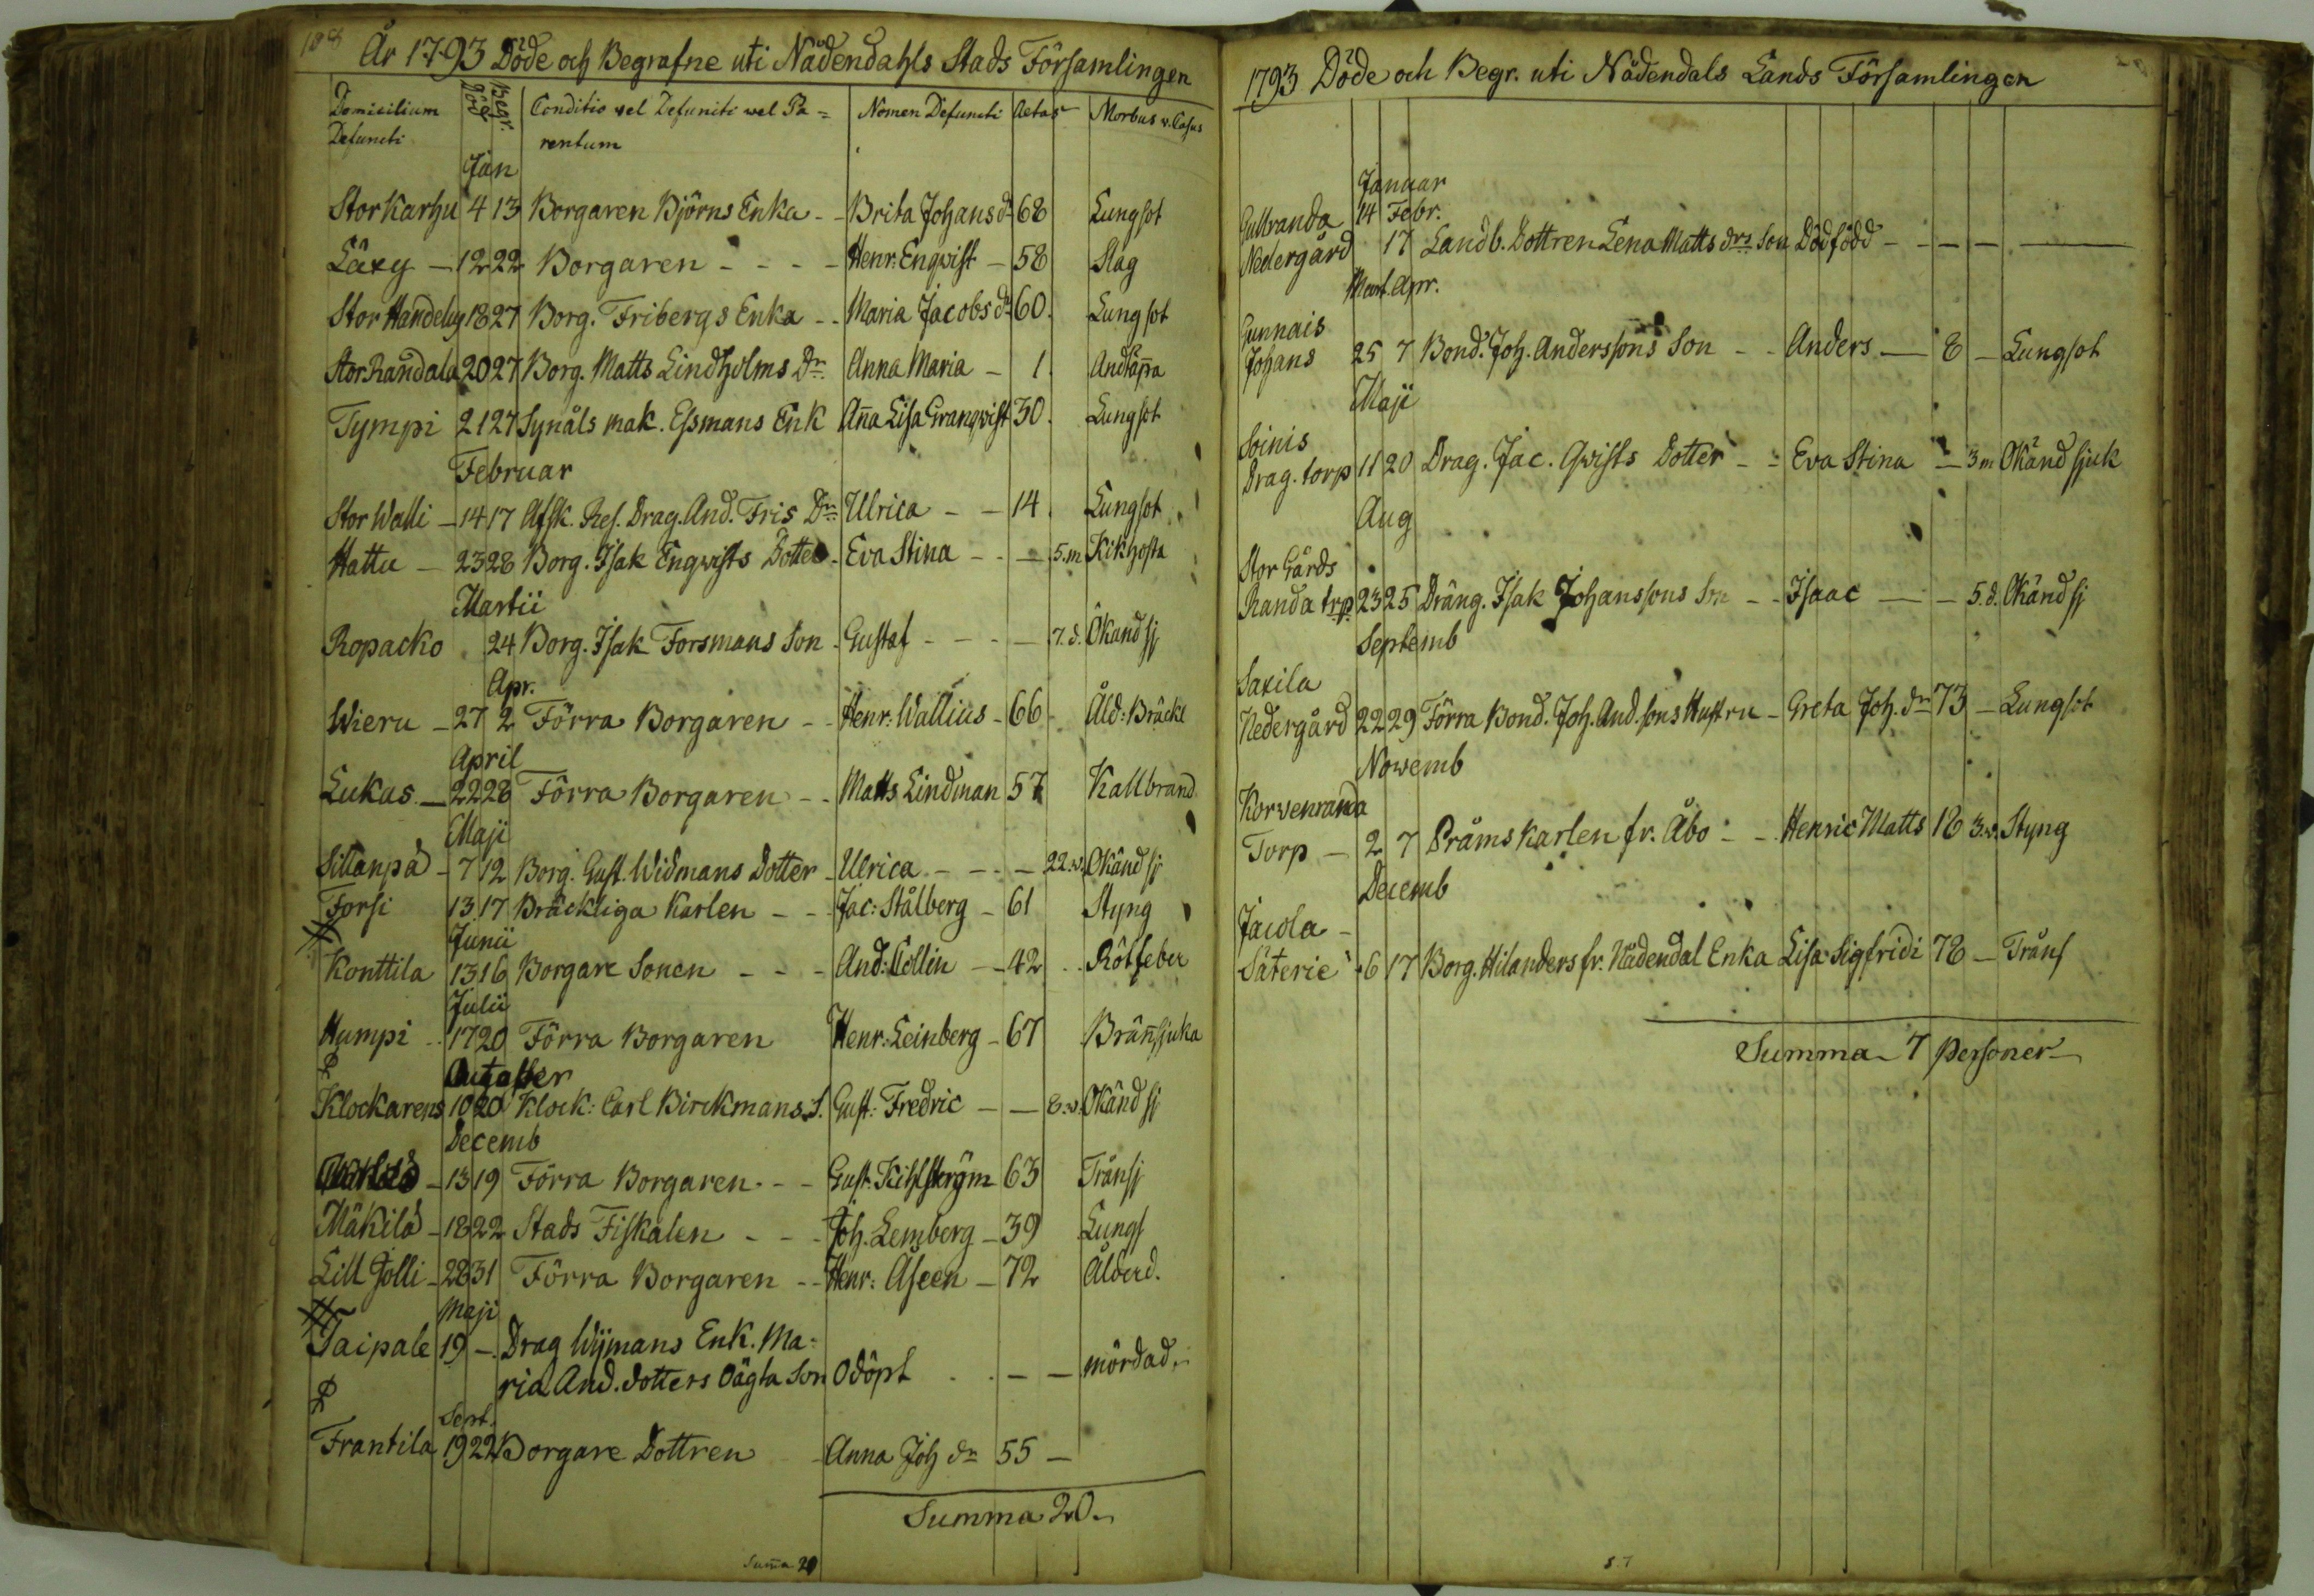 108 År 1793 Döde och Begrafne uti Nådendahls Stads Församlingen
Domicilium Defuncti Död Begr. Conditio vel Defuncti vel Pa= rentum Nomen Defuncti Aetas Morbus v. Casus
Jan
Stor Karhu 4 13 Borgaren Björns Enka - - Brita Johansdr 68 Lungsot
Läxy - 12 22 Borgaren - - - - Henr: Engvist - 58 Slag
Stor Handelug 18 27 Borg. Fribergs Enka - - Maria Jacobs dr 60. Lungsot
Stor Randala 20 27 Borg. Matts Lindholms Dr Anna Maria - 1. Andtäppa
Tympi 21 27 Synåls mak. Essmans Enk Aña Lisa Granqvist 30. Lungsot
Februar
Stor Walli - 14 17 Afsk. Res. Drag. And. Fris Dr Ulrica - - 14. Lungsot
Hattu - 23 28 Borg. Isak Engvists Dotter - Eva Stina - - - 5.m Kikhosta
Martii
Ropacko 24 Borg. Isak Forsmans Son - Gustaf - - - - 7.d. Okänd sj
Apr.
Wieru - 27 2 Förra Borgaren - - Henr: Wallius - 66 - Åld: Bräckl
April
Lukas - 22 28 Förra Borgaren - - Matts Lindman 57 Kallbrand
Maji
Sillanpä - 7 12 Borg. Gust. Widmans Dotter - Ulrica - - - - 22.w. Okänd sj
Forsi 13 17 Bräckliga Karlen - - Jac: Stålberg - 61 Styng
Junii
Konttila 13 16 Borgare Sonen - - - And: Collin - 42 - - Rötfeber
Julii
Humpi - 17 20 Förra Borgaren Henr: Leinberg - 67 Brännsjuka
October
Klockarens 10 20 Klock: Carl Birckmans S. Gust: Fredric - - 8.w. Okänd sj
Decemb
- 13 19 Förra Borgaren - - Gust. Kihlström 63 Trånsj
Mäkilä - 18 22 Stads Fiskalen - - - Joh. Lemberg - 39 Lungs
Lill Jolli - 28 31 Förra Borgaren - - Henr: Aseen - 72 Ålderd.
Maji
Taipale 19 - Drag Wijmans Enk. Ma=
ria And. dotters Oägta Son Odöpt - - - - mördad.
Sept.
Frantila 19 22 Borgare Dottren Anna Joh dr 55 -
Summa 20.
Suma 20
1793 Döde och Begr. uti Nådendals Lands Församlingen
Januar
Gullranda 14 Febr.
Nedergård 17 Landb. Dottren Lena Matts drs Son Dödfödd - - - -
Mart. Apr.
Gunnais
Johans 25 7 Bond. Joh. Anderssons Son - - Anders - 8 - Lungsot
Maji
Soinis
Drag. torp 11 20 Drag. Jac. Qvists Dotter - - Eva Stina - 3 m Okänd sjuk
Aug
Stor Gårds
Randa trp 23 25 Dräng. Isak Johanssons Son - - Isaac - - 5.d. Okänd sj
Septemb
Saxila
Nedergård 22 29 Förra Bond. Joh. And.sons Hustru - Greta Joh. dr 73 - Lungsot
Nowemb
Korvenranda
Torp - 2 7 Pråmskarlen fr. Åbo - - Henric Matts 18 3.w. Styng
Decemb
Jacola -
Säterie 6 17 Borg. Hilanders fr. Nådendal Enka Lisa Sigfridi 78 - Tråns
Summa 7 Personer
S. 7